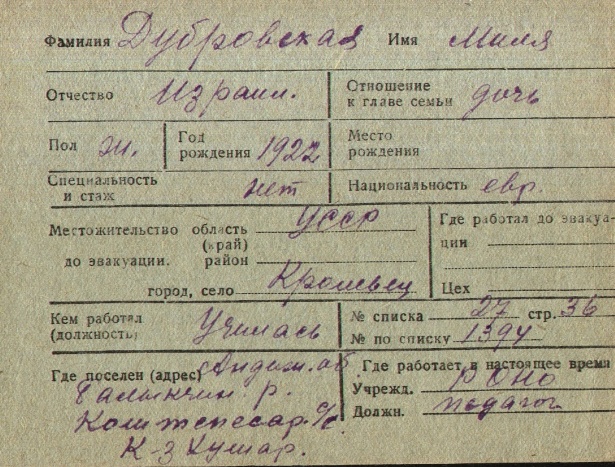 Фамилия Дубровская Имя Миля
Отчество Израил. Отношение к главе семьи дочь
Пол ж. Год рождения 1922 Место рождения
Специальность и стаж нет Национальность евр.
Местожительство область (край) УССР Где работал до эвакуа-
до эвакуации. район ции
город, село Кролевец Цех
Кем работал (должность) Училась № списка 27 стр. 36
№ по списку 1394
Где поселен (адрес) Андиж. об Где работает в настоящее время
Балыкчин. р. Учрежд. РОНО
Должн. педагог
К-з Хумар.